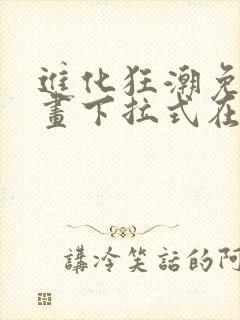 進化狂潮免
畫下拉式在
講冷笑話的阿